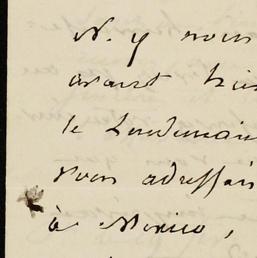 N. y vous
avant hie
le Lendemain
vous adressan
à Mexico,